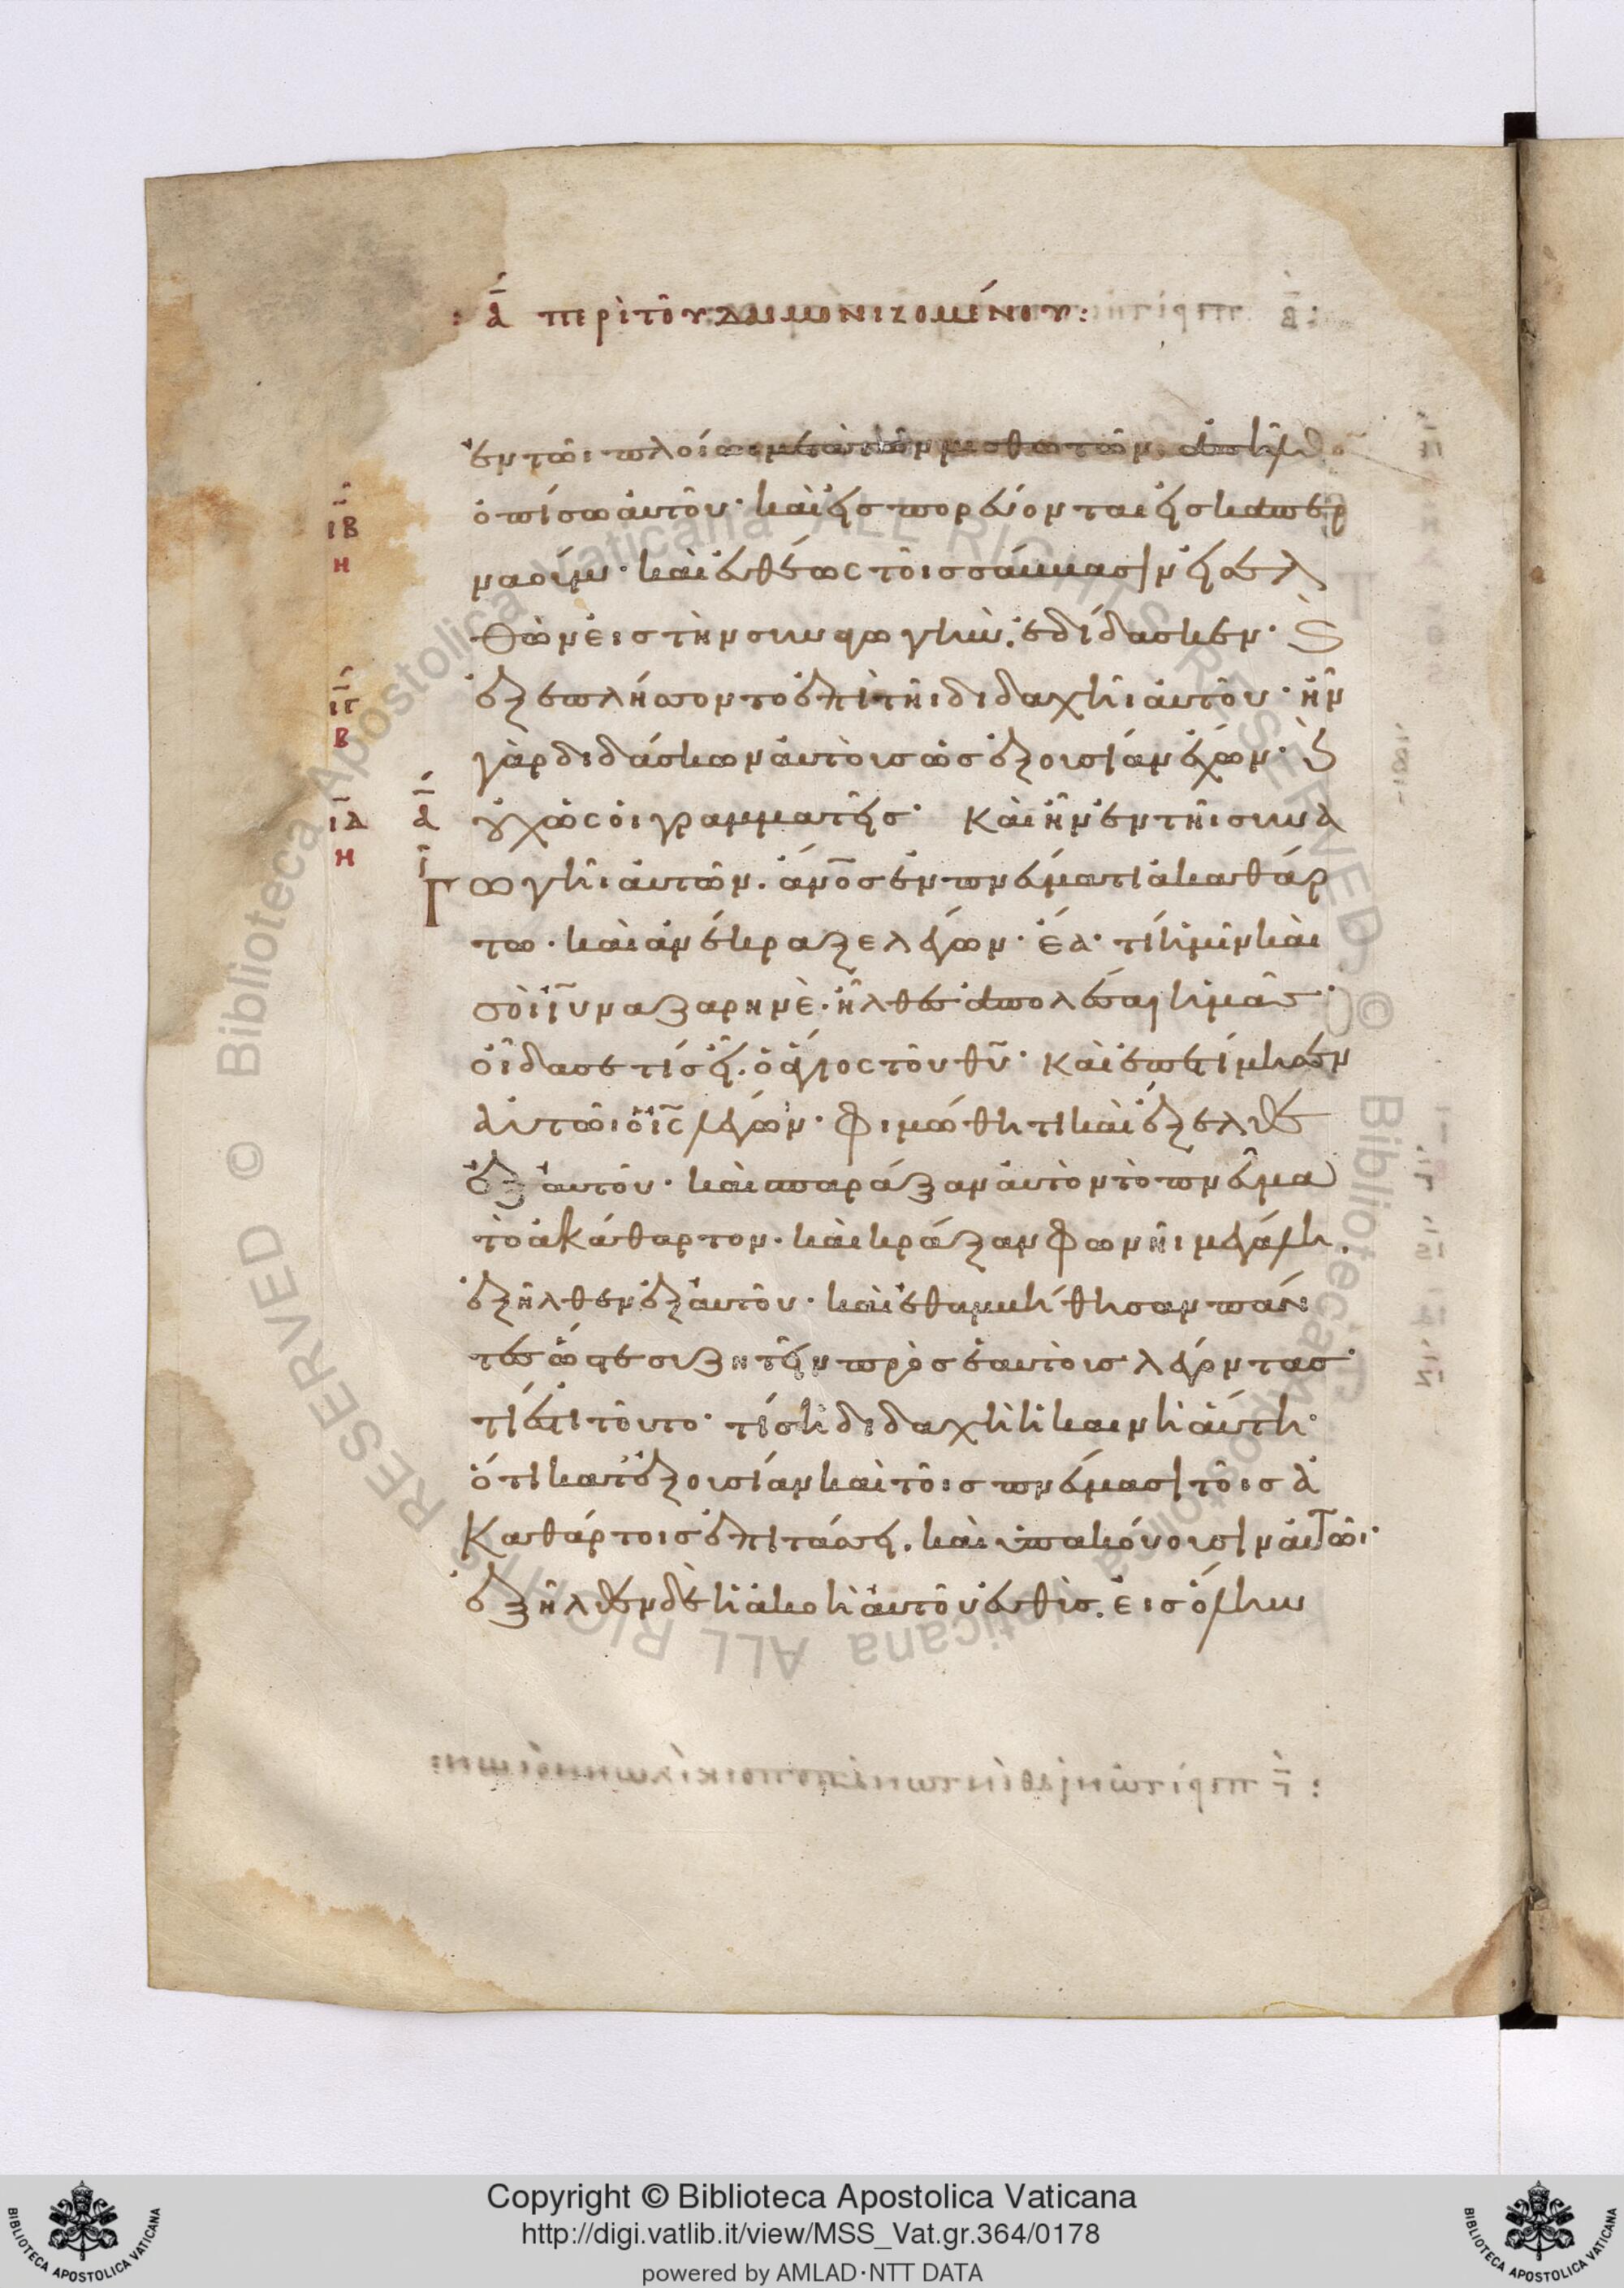 : α̅ περὶ τοῦ δαιμονιζομένου:
ἐν τῶι πλοίωι μετὰ τῶν μισθωτῶν. ἀπῆλθο
ὀπίσω αὐτοῦ· καὶ εἰσπορεύονται εἰς καπερ
ναούμ· καὶ εὐθέως τοῖς σάββασιν εἰσελ
θὼν εἰς τὴν συναγωγὴν. ἐδίδασκεν· Ϗ
ι̅β̅
η
ἐξεπλήσσοντο ἐπὶ τῆι διδαχῆι αὐτοῦ· ἦν
γὰρ διδάσκων αὐτοὺς ὡς ἐξουσίαν ἔχων· ϗ
ι̅γ̅
β
οὐχ ὡς οἱ γραμματεῖς· Καὶ ἦν ἐν τῆι συνα
ι̅δ̅
η
α̅
γωγῆι αὐτῶν. ἄνο̅ς ἐν πνεύματι ἀκαθάρ
τω· καὶ ἀνέκραξε λέγων· ἔα· τί ἡμῖν καὶ
σοὶ ι̅υ̅ ναζαρηνὲ· ἦλθες ἀπολέσαι ἡμᾶς·
οἶδα σε τίς εἶ. ὁ ἅγιος τοῦ θ̅υ̅· Καὶ ἐπετίμησεν
αὐτῶι ὁ ι̅ς̅ λέγων· φιμώθητι καὶ ἔξελθε
ἐξ αὐτοῦ· καὶ σπαράξαν αὐτὸν τὸ πνεῦμα
τὸ ἀκάθαρτον· καὶ κράξαν φωνῆι μεγάλη.
ἐξῆλθεν ἐξ αὐτοῦ· καὶ ἐθαμβήθησαν πάν
τες ὥστε συζητεῖν πρὸς ἑαυτοὺς λέγοντας·
τί ἐστι τοῦτο· τίς ἡ διδαχὴ ἡ καινὴ αὕτη·
ὅτι κατ' ἐξουσίαν καὶ τοῖς πνεύμασι τοῖς ἀ
καθάρτοις ἐπιτάσσει. καὶ ὑπακούουσιν αὐτῶι·
ἐξῆλθεν δὲ ἡ ἀκοὴ αὐτοῦ εὐθὺς. εἰς ὅλην
Copyright © Biblioteca Apostolica Vaticana
http://digi.vatlib.it/view/MSS_Vat.gr.364/0178
powered by AMLAD·NTT DATA
BIBLIOTECA APOSTOLICA VATICANA
BIBLIOTECA APOSTOLICA VATICANA